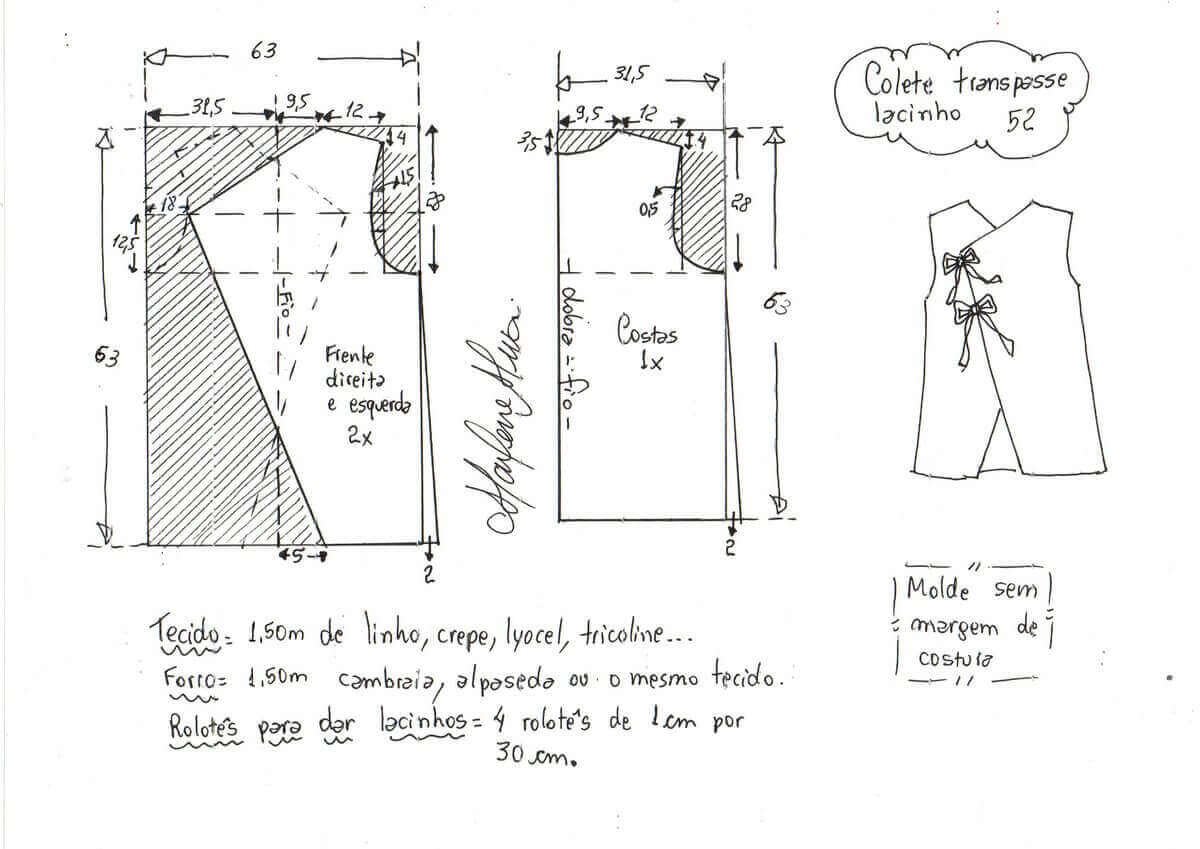 63
31,5
9,5
12
4
15
28
18
12,5
63
-Fio-
Frente
direita
e esquerda
2x
5
2
31,5
9,5
12
3,5
4
0,5
28
63
dobra = fio -
Costas
1x
2
Colete transpasse
lacinho 52
Molde sem
margem de
costura
Tecido = 1,50m de linho, crepe, lyocel, tricoline...
Forro = 1,50m cambraia, alpaseda ou o mesmo tecido.
Rolotês para dar lacinhos = 4 rolotês de 1cm por
30 cm.